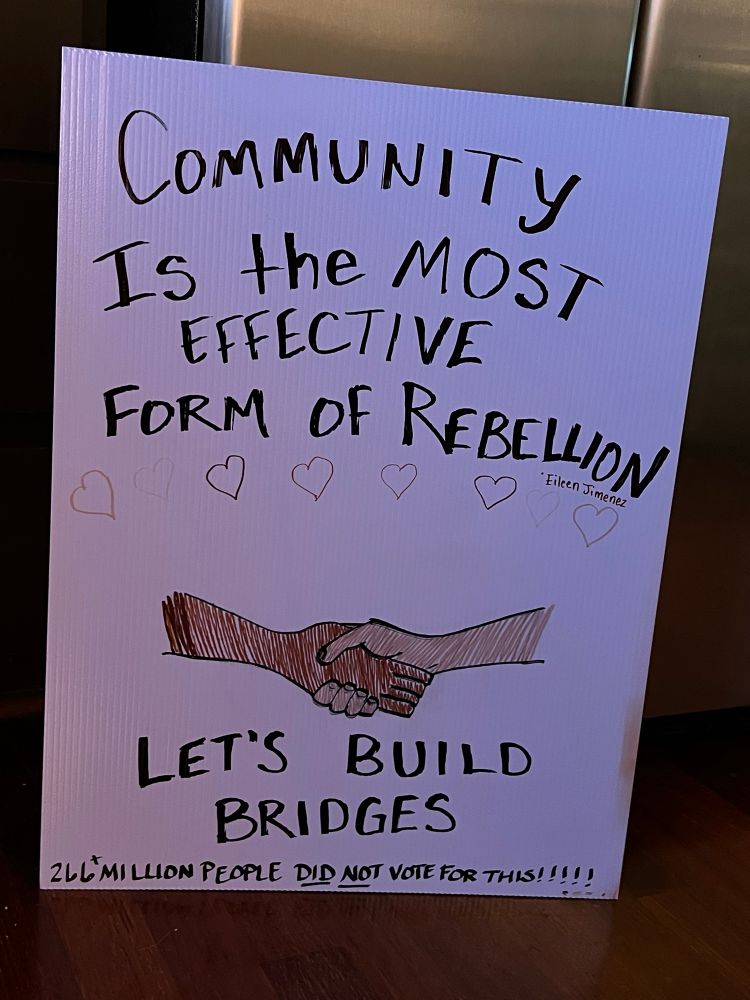 COMMUNITY
Is the MOST
EFFECTIVE
FORM OF REBELLION
Eileen Jimenez
LET'S BUILD
BRIDGES
266+ MILLION PEOPLE DID NOT VOTE FOR THIS!!!!!